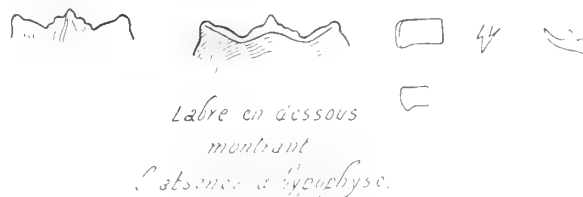 Labre en dessous
montrant
l'absence d'hypophyse.